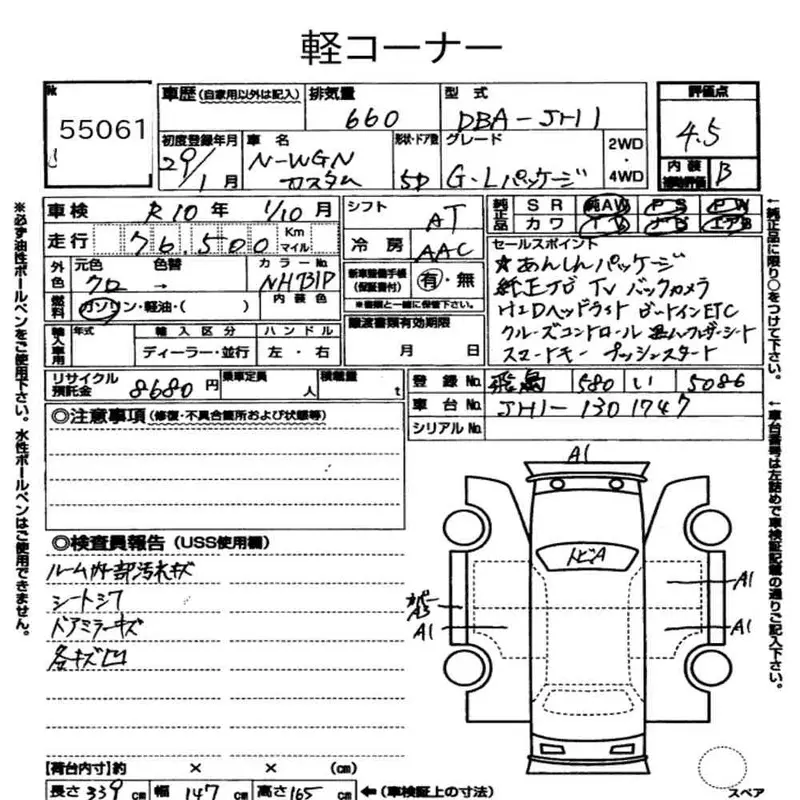 軽コーナー
№ 55061
車歴 (自家用以外は記入)
排気量 660
型式 DBA-JH1
評価点 4.5
内装補助評価 B
初度登録年月 29年1月
車名 N-WGN カスタム
形状・ドア数 5D
グレード G・Lパッケージ
2WD・4WD
車検 R10年 1/10月
走行 76,500 Km マイル
外色 元色 クロ 色替 →
カラーNo. NH731P
燃料 ガソリン・軽油・( )
内装色
輸入車用 年式 輸入区分 ハンドル
ディーラー・並行 左・右
シフト AT
冷房 AAC
新車整備手帳 (保証書付) 有・無
※書類と一緒に保管下さい。
譲渡書類有効期限
月 日
純正品 SR 純AW PS PW
カワ TV ナビ エアB
セールスポイント
★あんしんパッケージ
純正ナビ TV バックカメラ
HIDヘッドライト ビートインETC
クルーズコントロール 革ハーフレザーシート
スマートキー プッシュスタート
リサイクル預託金 8680円
乗車定員 人
積載量 t
登録No. 飛鳥 580 い 5086
車台No. JH1-1301747
シリアルNo.
◎注意事項 (修復・不具合箇所および状態等)
◎検査員報告 (USS使用欄)
ルーム内外部汚れキズ
シートシワ
ドアミラーキズ
各キズ凹
A1
トビA
A1
カバーA3
A1
A1
【荷台内寸】約 × × (㎝)
長さ 339 ㎝ 幅 147 ㎝ 高さ 165 ㎝ ←(車検証上の寸法)
スペア
※必ず油性ボールペンをご使用下さい。水性ボールペンはご使用できません。
↑純正品に限り○をつけて下さい。
↑車台番号は左詰めで車検証記載の通りご記入下さい。